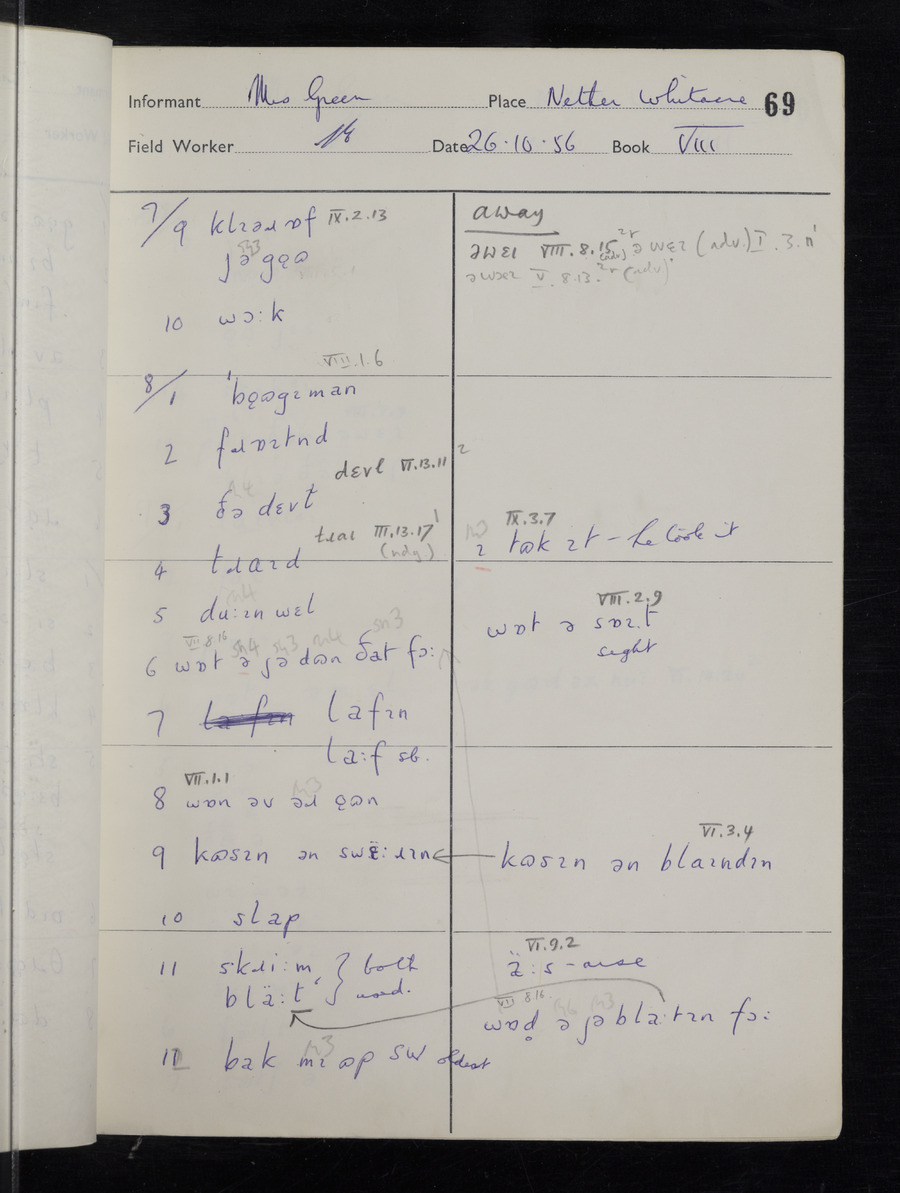 Informant Mrs Green Place Nether Whitacre 69
Field Worker Date 26.10.56 Book VIII
7/9 klɪəɹ ɒf IX.2.13
jə gǫɷ
10 wɔ:k
VIII.1.6
8/1 'bǫɷgɪman
2 fɹɒɪtnd
devl VI.13.11 2
3 ðə devɫ
tɹaɪ III.13.17 1
(ndg)
4 tɹaɪd
5 du:ɪn wɛl
VII.8.16
6 wɒt ə jə dɷn ðat fɔ:
7 lafɪn
la:f sb.
VII.1.1
8 wɒn əv əɹ ǫɷn
9 kɷsɪn ən swɛ̈:ɹɪn
10 slap
11 skɹi:m } both
blä:t } used.
12 bak mɪ ɷp SW oldest
away
əwɛɪ VIII.8.15 (adv) ə wɛɪ (adv) I.3.11
əwæɪ V.8.13. (adv)
IX.3.7
ɪ tɷk ɪt – he took it
VIII.2.9
wɒt ə sɒɪt
sight
VI.3.4
kɷsɪn ən blaɪndɪn
VI.9.2
ä:s – arse
VII.8.16
wɒd̥ ə jə bla:tɪn fɔ: